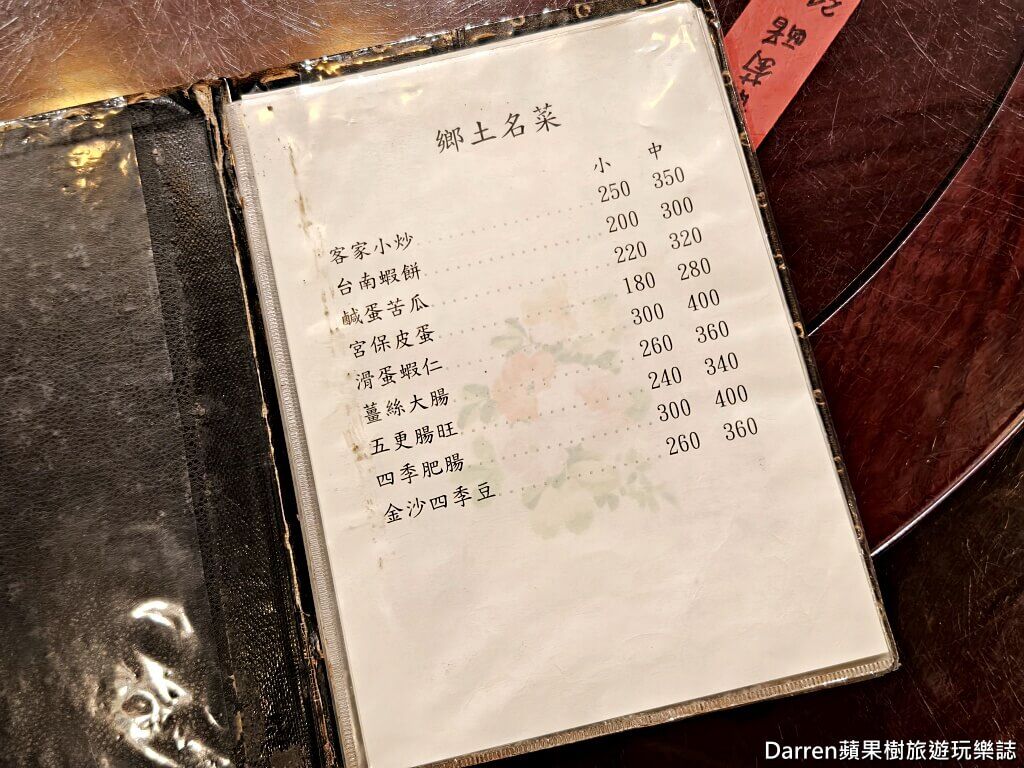 鄉土名菜
小 中
客家小炒 250 350
台南蝦餅 200 300
鹹蛋苦瓜 220 320
宮保皮蛋 180 280
滑蛋蝦仁 300 400
薑絲大腸 260 360
五更腸旺 240 340
四季肥腸 300 400
金沙四季豆 260 360
Darren蘋果樹旅遊玩樂誌